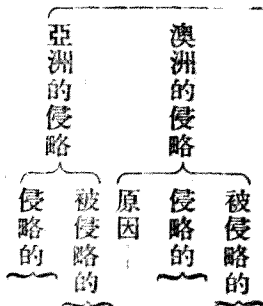 澳洲的侵略
被侵略的
侵略的
原因
亞洲的侵略
被侵略的
侵略的